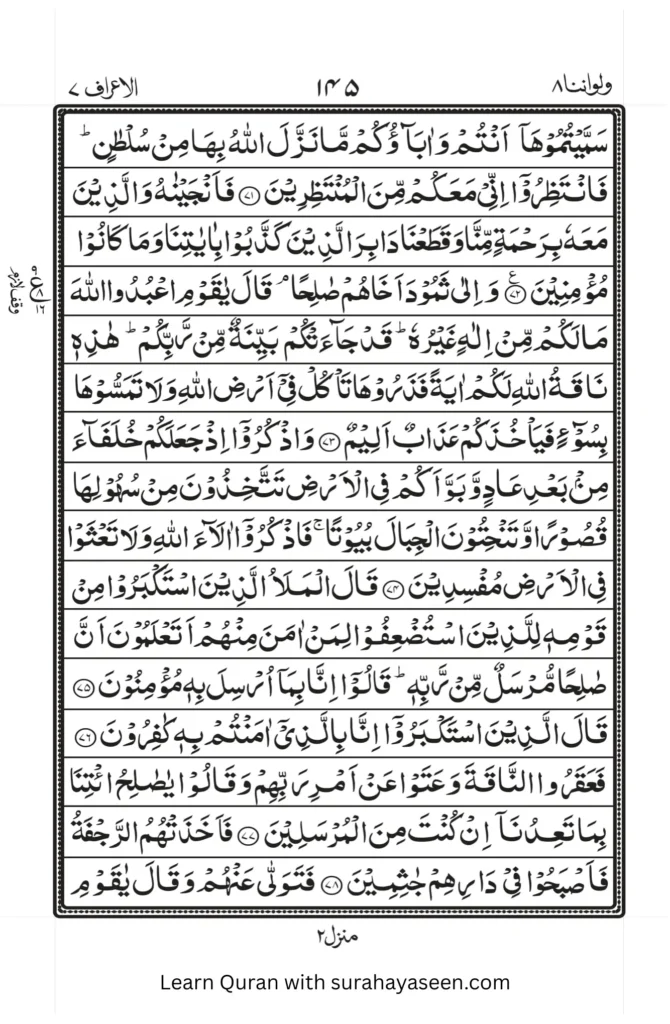 ولواننا ٨
١٤٥
الاعراف ٧
سَمَّيْتُمُوْهَاۤ اَنْتُمْ وَاٰبَآؤُكُمْ مَّا نَزَّلَ اللّٰهُ بِهَا مِنْ سُلْطٰنٍ ؕ
فَانْتَظِرُوْۤا اِنِّیْ مَعَكُمْ مِّنَ الْمُنْتَظِرِيْنَ ﴿۷۱﴾ فَاَنْجَيْنٰهُ وَالَّذِيْنَ
مَعَهٗ بِرَحْمَةٍ مِّنَّا وَقَطَعْنَا دَابِرَ الَّذِيْنَ كَذَّبُوْا بِاٰيٰتِنَا وَمَا كَانُوْا
مُؤْمِنِيْنَ ﴿۷۲﴾ ع وَاِلٰى ثَمُوْدَ اَخَاهُمْ صٰلِحًا ۘ قَالَ يٰقَوْمِ اعْبُدُوا اللّٰهَ
وقف لازم
مَا لَكُمْ مِّنْ اِلٰهٍ غَيْرُهٗ ؕ قَدْ جَآءَتْكُمْ بَيِّنَةٌ مِّنْ رَّبِّكُمْ ؕ هٰذِهٖ
نَاقَةُ اللّٰهِ لَكُمْ اٰيَةً فَذَرُوْهَا تَاْكُلْ فِیْۤ اَرْضِ اللّٰهِ وَلَا تَمَسُّوْهَا
بِسُوْٓءٍ فَيَاْخُذَكُمْ عَذَابٌ اَلِيْمٌ ﴿۷۳﴾ وَاذْكُرُوْۤا اِذْ جَعَلَكُمْ خُلَفَآءَ
مِنْۢ بَعْدِ عَادٍ وَّبَوَّاَكُمْ فِی الْاَرْضِ تَتَّخِذُوْنَ مِنْ سُهُوْلِهَا
قُصُوْرًا وَّتَنْحِتُوْنَ الْجِبَالَ بُيُوْتًا ۚ فَاذْكُرُوْۤا اٰلَآءَ اللّٰهِ وَلَا تَعْثَوْا
فِی الْاَرْضِ مُفْسِدِيْنَ ﴿۷۴﴾ قَالَ الْمَلَاُ الَّذِيْنَ اسْتَكْبَرُوْا مِنْ
قَوْمِهٖ لِلَّذِيْنَ اسْتُضْعِفُوْا لِمَنْ اٰمَنَ مِنْهُمْ اَتَعْلَمُوْنَ اَنَّ
صٰلِحًا مُّرْسَلٌ مِّنْ رَّبِّهٖ ؕ قَالُوْۤا اِنَّا بِمَاۤ اُرْسِلَ بِهٖ مُؤْمِنُوْنَ ﴿۷۵﴾
قَالَ الَّذِيْنَ اسْتَكْبَرُوْۤا اِنَّا بِالَّذِیْۤ اٰمَنْتُمْ بِهٖ كٰفِرُوْنَ ﴿۷۶﴾
فَعَقَرُوا النَّاقَةَ وَعَتَوْا عَنْ اَمْرِ رَبِّهِمْ وَقَالُوْا يٰصٰلِحُ ائْتِنَا
بِمَا تَعِدُنَاۤ اِنْ كُنْتَ مِنَ الْمُرْسَلِيْنَ ﴿۷۷﴾ فَاَخَذَتْهُمُ الرَّجْفَةُ
فَاَصْبَحُوْا فِیْ دَارِهِمْ جٰثِمِيْنَ ﴿۷۸﴾ فَتَوَلّٰى عَنْهُمْ وَقَالَ يٰقَوْمِ
منزل ٢
Learn Quran with surahayaseen.com